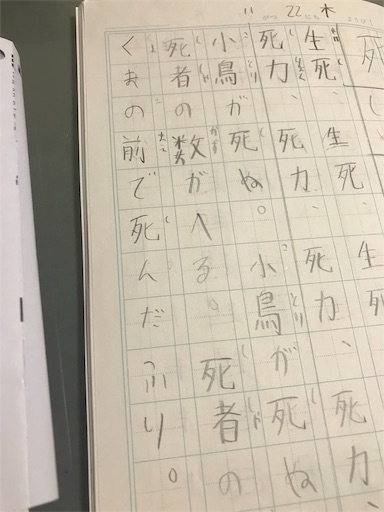 11 22 木
死し
生死、生死、生死
死力、死力、死力、死力、
小鳥が死ぬ。小鳥が死ぬ
死者の数がへる。死者の
くまの前で死んだふり。